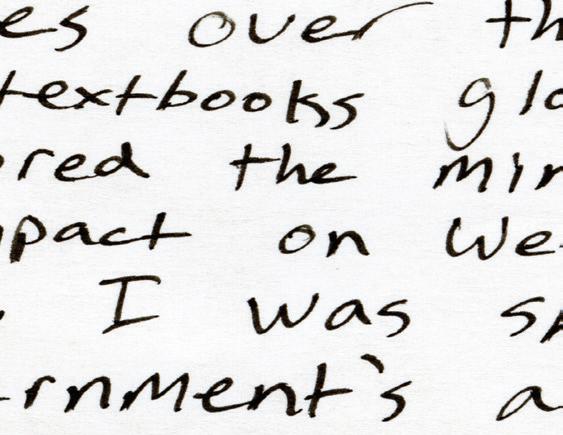 es over th
textbooks glo
ored the min
mpact on We
. I was sp
ernment's a